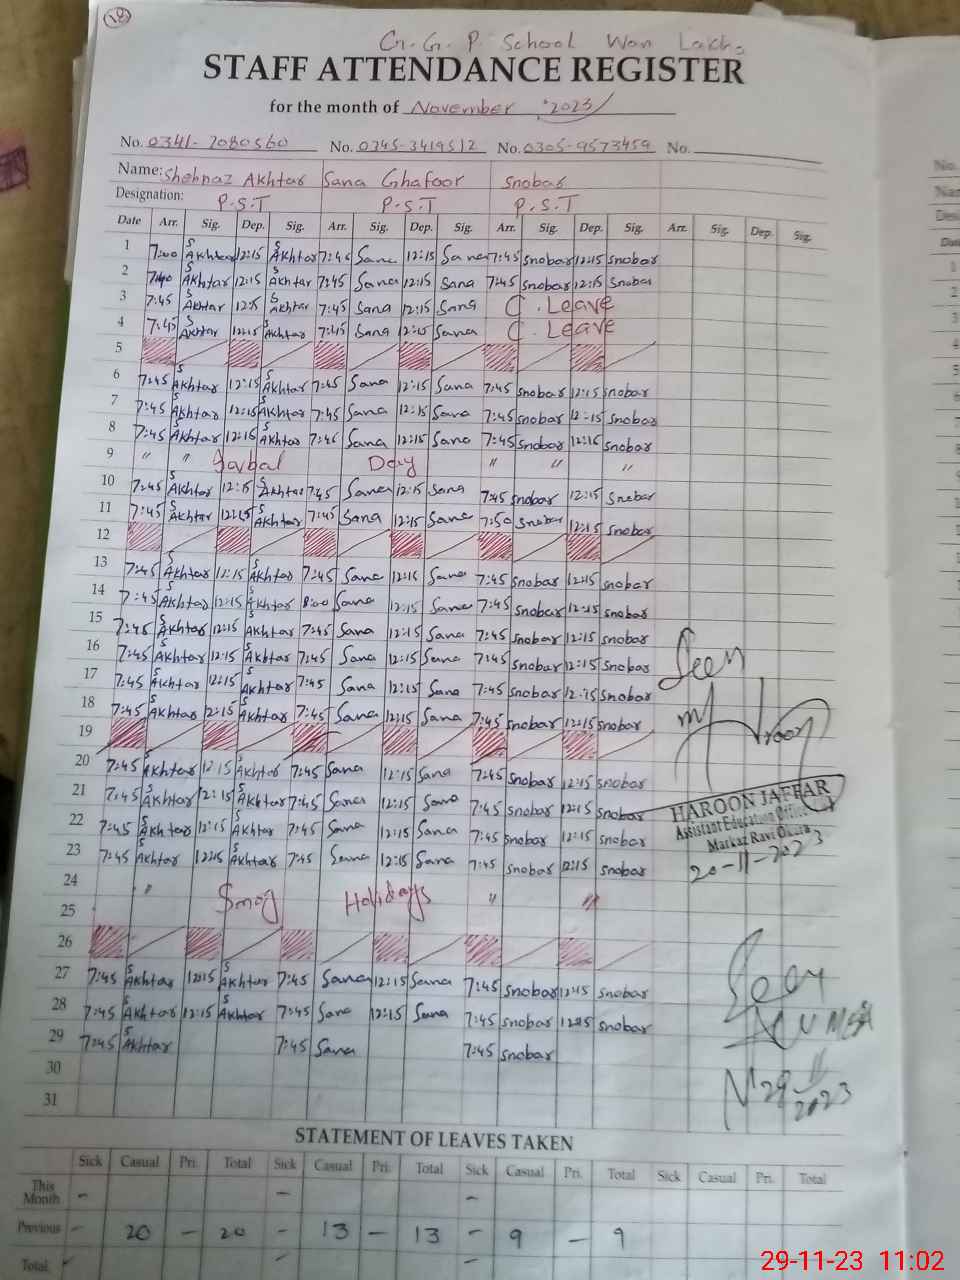 18
G. G. P. School Wan Lakha
STAFF ATTENDANCE REGISTER
for the month of November 2023
No. 0341-7080560 No. 0345-3419512 No. 0305-9573459 No.
Name: Shehnaz Akhtar Sana Ghafoor Snobar
Designation: P.S.T P.S.T P.S.T
Date Arr. Sig. Dep. Sig. Arr. Sig. Dep. Sig. Arr. Sig. Dep. Sig. Arr. Sig. Dep. Sig.
1 7:00 S Akhtar 12:15 S Akhtar 7:45 Sana 12:15 Sana 7:45 snobar 12:15 snobar
2 7:40 S Akhtar 12:15 S Akhtar 7:45 Sana 12:15 Sana 7:45 snobar 12:15 Snobar
3 7:45 S Akhtar 12:15 S Akhtar 7:45 Sana 12:15 Sana C. Leave
4 7:45 S Akhtar 12:15 S Akhtar 7:45 Sana 12:15 Sana C. Leave
5
6 7:45 S Akhtar 12:15 S Akhtar 7:45 Sana 12:15 Sana 7:45 snobar 12:15 snobar
7 7:45 S Akhtar 12:15 S Akhtar 7:45 Sana 12:15 Sana 7:45 snobar 12:15 snobar
8 7:45 S Akhtar 12:15 S Akhtar 7:45 Sana 12:15 Sana 7:45 snobar 12:15 snobar
9 " " Iqbal Day " " "
10 7:45 S Akhtar 12:15 S Akhtar 7:45 Sana 12:15 Sana 7:45 snobar 12:15 Snobar
11 7:45 S Akhtar 12:15 S Akhtar 7:45 Sana 12:15 Sana 7:50 snobar 12:15 snobar
12
13 7:45 S Akhtar 12:15 S Akhtar 7:45 Sana 12:15 Sana 7:45 snobar 12:15 snobar
14 7:45 S Akhtar 12:15 S Akhtar 8:00 Sana 12:15 Sana 7:45 snobar 12:15 snobar
15 7:45 S Akhtar 12:15 S Akhtar 7:45 Sana 12:15 Sana 7:45 snobar 12:15 snobar
16 7:45 S Akhtar 12:15 S Akhtar 7:45 Sana 12:15 Sana 7:45 snobar 12:15 snobar
17 7:45 S Akhtar 12:15 S Akhtar 7:45 Sana 12:15 Sana 7:45 snobar 12:15 snobar
18 7:45 S Akhtar 12:15 S Akhtar 7:45 Sana 12:15 Sana 7:45 snobar 12:15 snobar
19
20 7:45 S Akhtar 12:15 S Akhtar 7:45 Sana 12:15 Sana 7:45 snobar 12:15 snobar
21 7:45 S Akhtar 12:15 S Akhtar 7:45 Sana 12:15 Sana 7:45 snobar 12:15 snobar
22 7:45 S Akhtar 12:15 S Akhtar 7:45 Sana 12:15 Sana 7:45 snobar 12:15 snobar
23 7:45 S Akhtar 12:15 S Akhtar 7:45 Sana 12:15 Sana 7:45 snobar 12:15 snobar
24 " Smog Holidays " "
25
26
27 7:45 S Akhtar 12:15 S Akhtar 7:45 Sana 12:15 Sana 7:45 snobar 12:15 snobar
28 7:45 S Akhtar 12:15 S Akhtar 7:45 Sana 12:15 Sana 7:45 snobar 12:15 snobar
29 7:45 S Akhtar 7:45 Sana 7:45 snobar
30
31
Seen
Haroon
HAROON JAFFAR
Assistant Education Officer
Markaz Ravi Okara
20-11-2023
Seen
29-11-2023
STATEMENT OF LEAVES TAKEN
Sick Casual Pri. Total Sick Casual Pri. Total Sick Casual Pri. Total Sick Casual Pri. Total
This Month - - -
Previous - 20 - 20 - 13 - 13 - 9 - 9
Total - - -
29-11-23 11:02